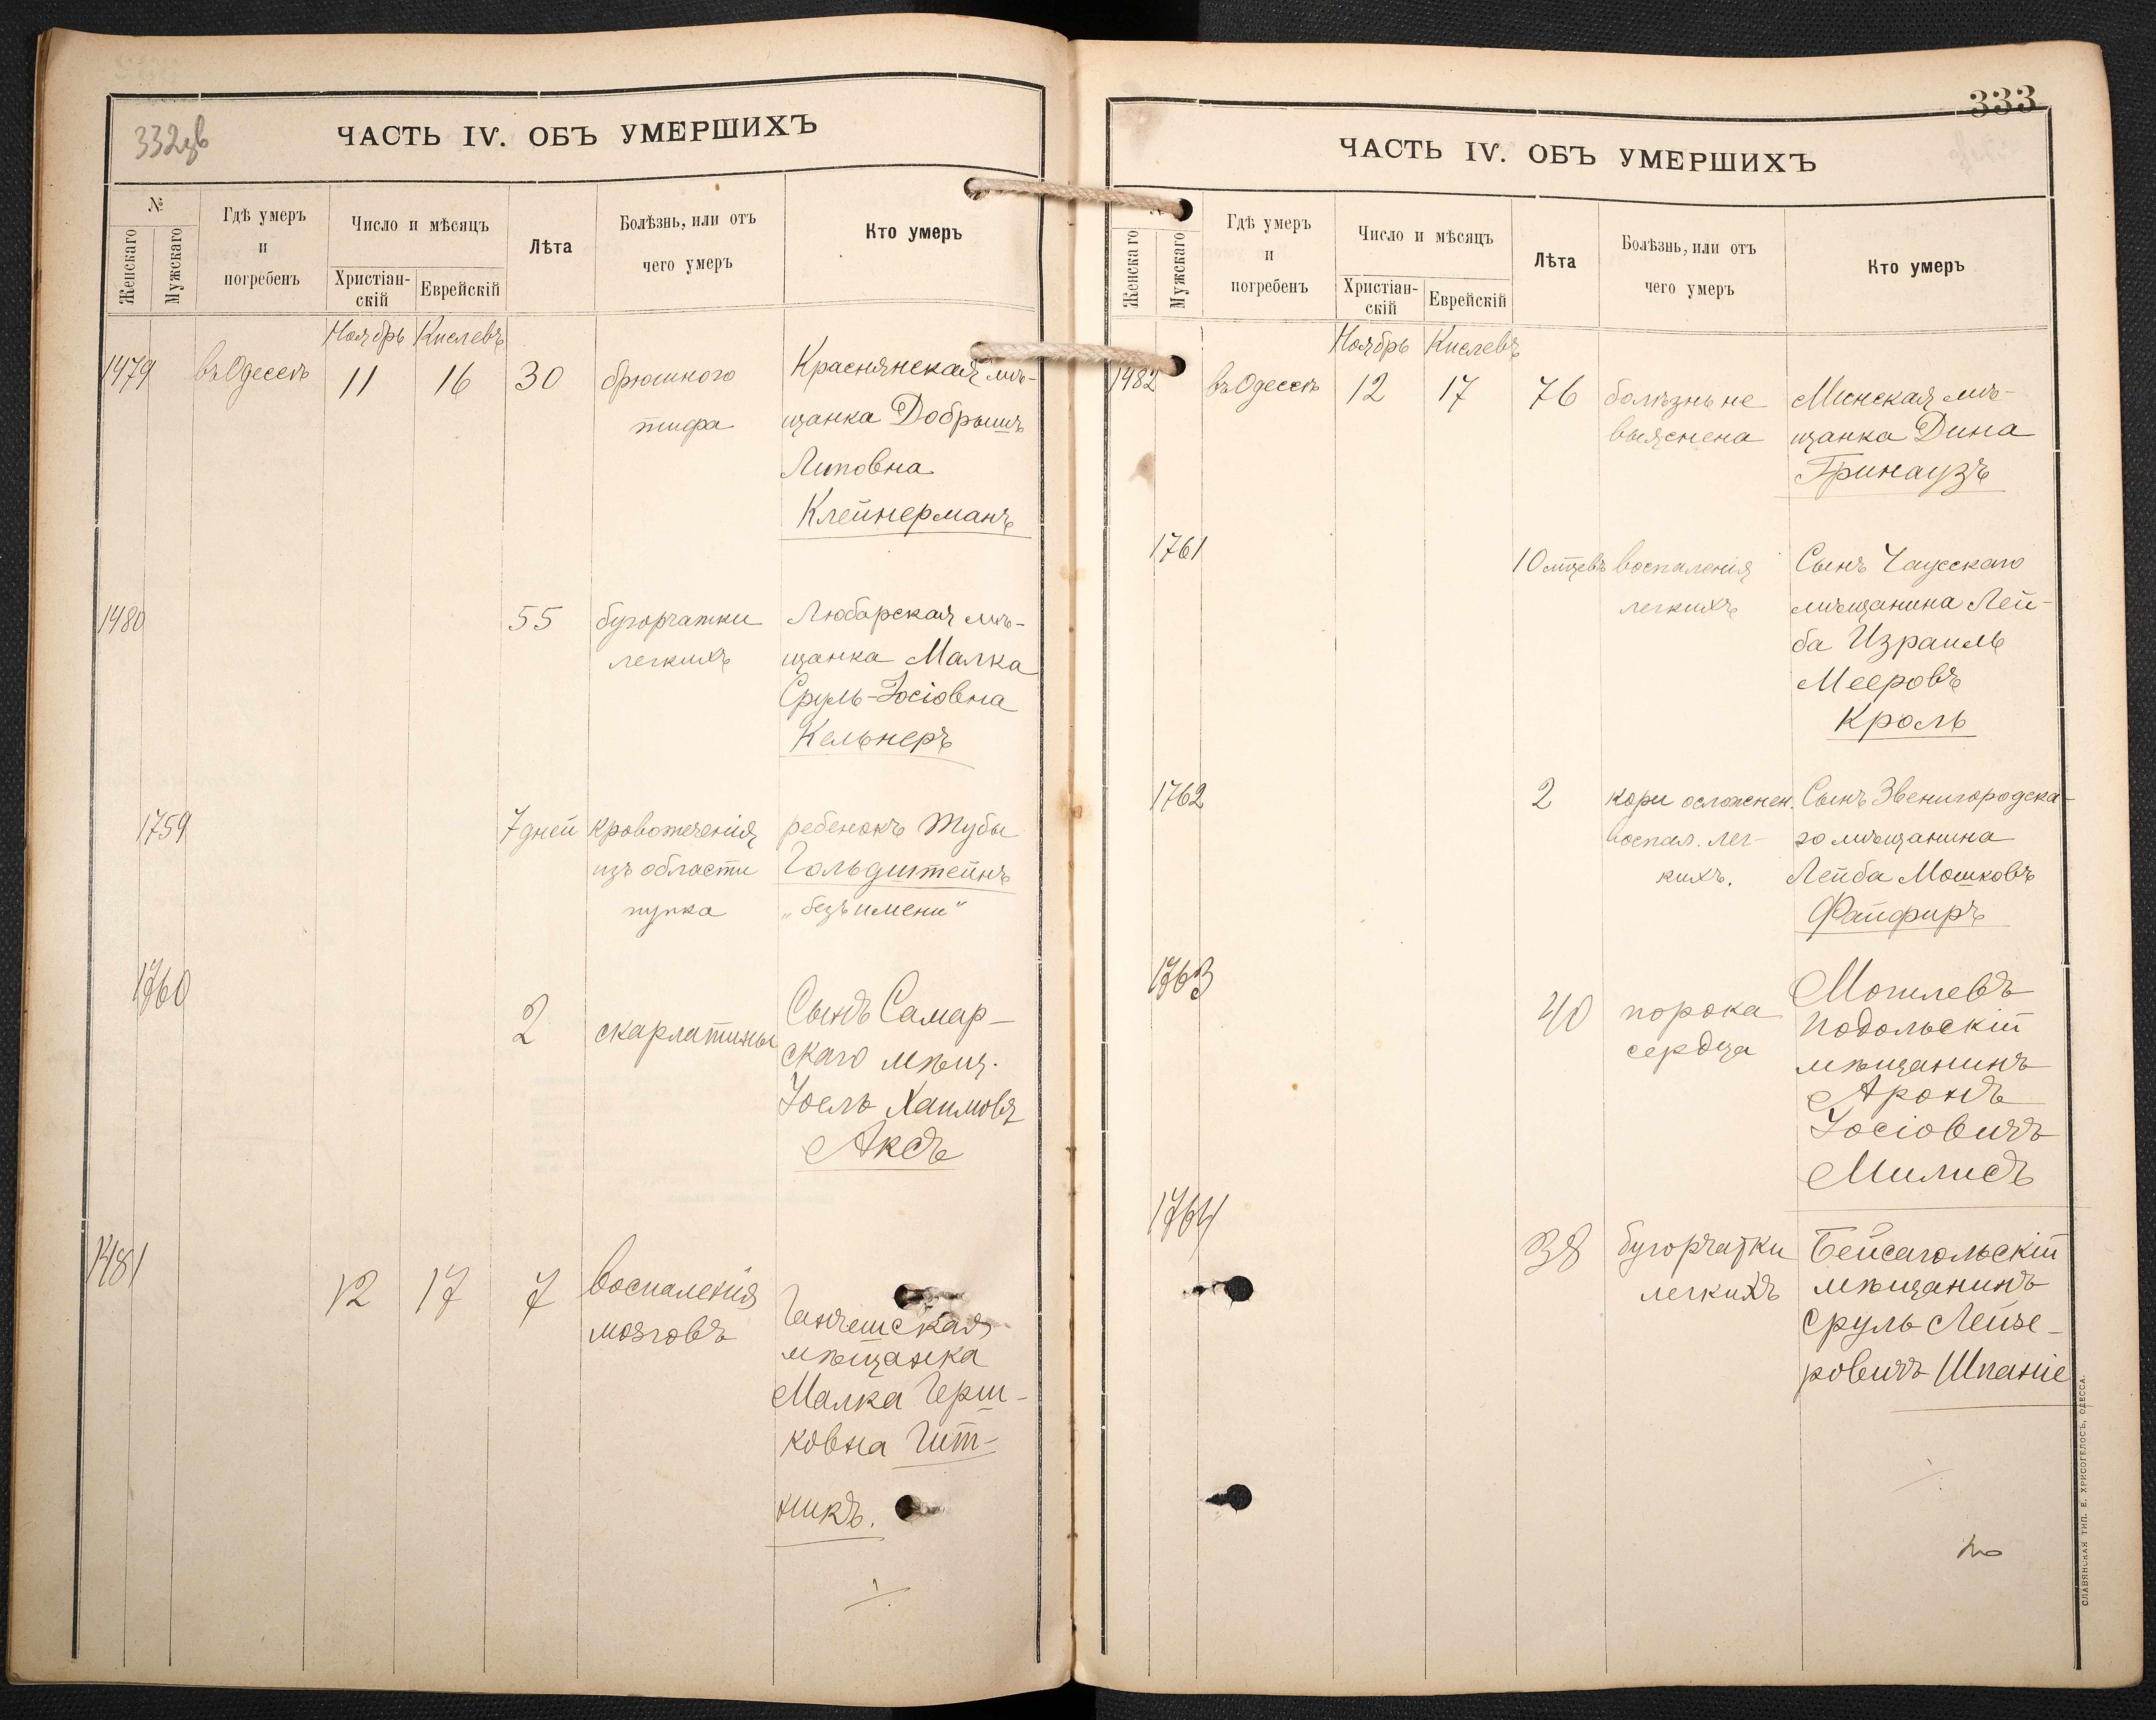 332об
ЧАСТЬ IV. ОБЪ УМЕРШИХЪ
№
Женскаго
Мужскаго
Гдѣ умеръ
и
погребенъ
Число и мѣсяцъ
Христіан-
скій
Еврейскій
Лѣта
Болѣзнь, или отъ
чего умеръ
Кто умеръ
Ноябрь Кислевъ
1479 въ Одессѣ 11 16 30 брюшного Краснянская мѣ-
тифа щанка Добрышъ
Липовна
Клейнерманъ
1480 55 бугорчатки Любарская мѣ-
легкихъ щанка Малка
Сруль-Іосіовна
Кельнеръ
1759 7 дней кровотеченія ребенокъ Тубы
изъ области Гольдштейнъ
пупка „безъ имени"
1760 2 скарлатины Сынъ Самар-
скаго мѣщ.
Іоель Хаимовъ
Аксъ
1481 12 17 7 воспаленія Ганчешская
мозговъ мѣщанка
Малка Герш-
ковна Гит-
никъ.
333
ЧАСТЬ IV. ОБЪ УМЕРШИХЪ
№
Женскаго
Мужскаго
Гдѣ умеръ
и
погребенъ
Число и мѣсяцъ
Христіан-
скій
Еврейскій
Лѣта
Болѣзнь, или отъ
чего умеръ
Кто умеръ
Ноябрь Кислевъ
1482 въ Одессѣ 12 17 76 болѣзнь не Минская мѣ-
выяснена щанка Дина
Гринаузъ
1761 10 мѣцевъ воспаленія Сынъ Чаусскаго
легкихъ мѣщанина Лей-
ба Израиль
Мееровъ
Кроль
1762 2 кори осложнен. Сынъ Звенигородска-
воспал. лег- го мѣщанина
кихъ. Лейба Мошковъ
Файфиръ
1763 40 порока Могилевъ
сердца Подольскій
мѣщанинъ
Аронъ
Іосіовичъ
Милисъ
1764 38 бугорчатки Бейсагольскій
легкихъ мѣщанинъ
Сруль Лейзе-
ровичъ Шпаніе
СЛАВЯНСКАЯ ТИП. Е. ХРИСОГЕЛОСЪ, ОДЕССА.